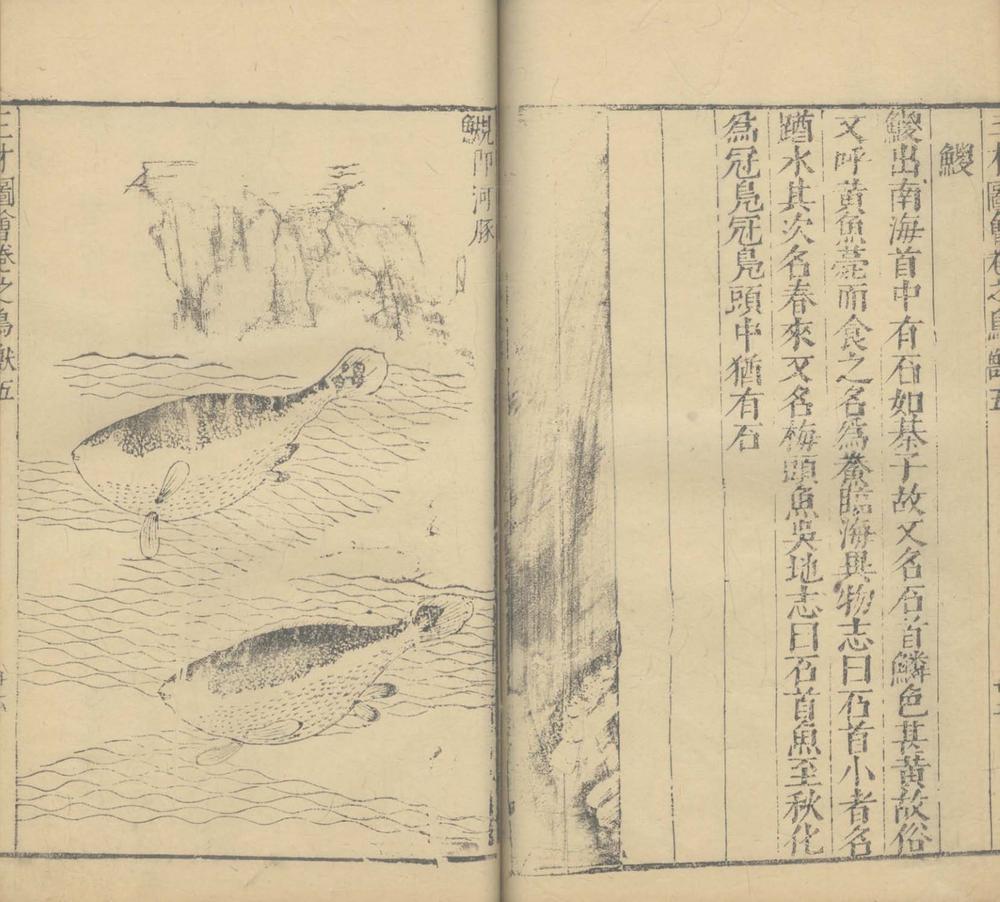 三才圖會卷之鳥獸五
鯼
鯼出南海首中有石如棊子故又名石首鱗色甚黃故俗
又呼黃魚薧而食之名爲鮝臨海異物志曰石首小者名
蹖水其次名春來又名梅頭魚吳地志曰石首魚至秋化
爲冠鳧冠鳧頭中猶有石
鯢即河豚
三才圖會卷之鳥獸五